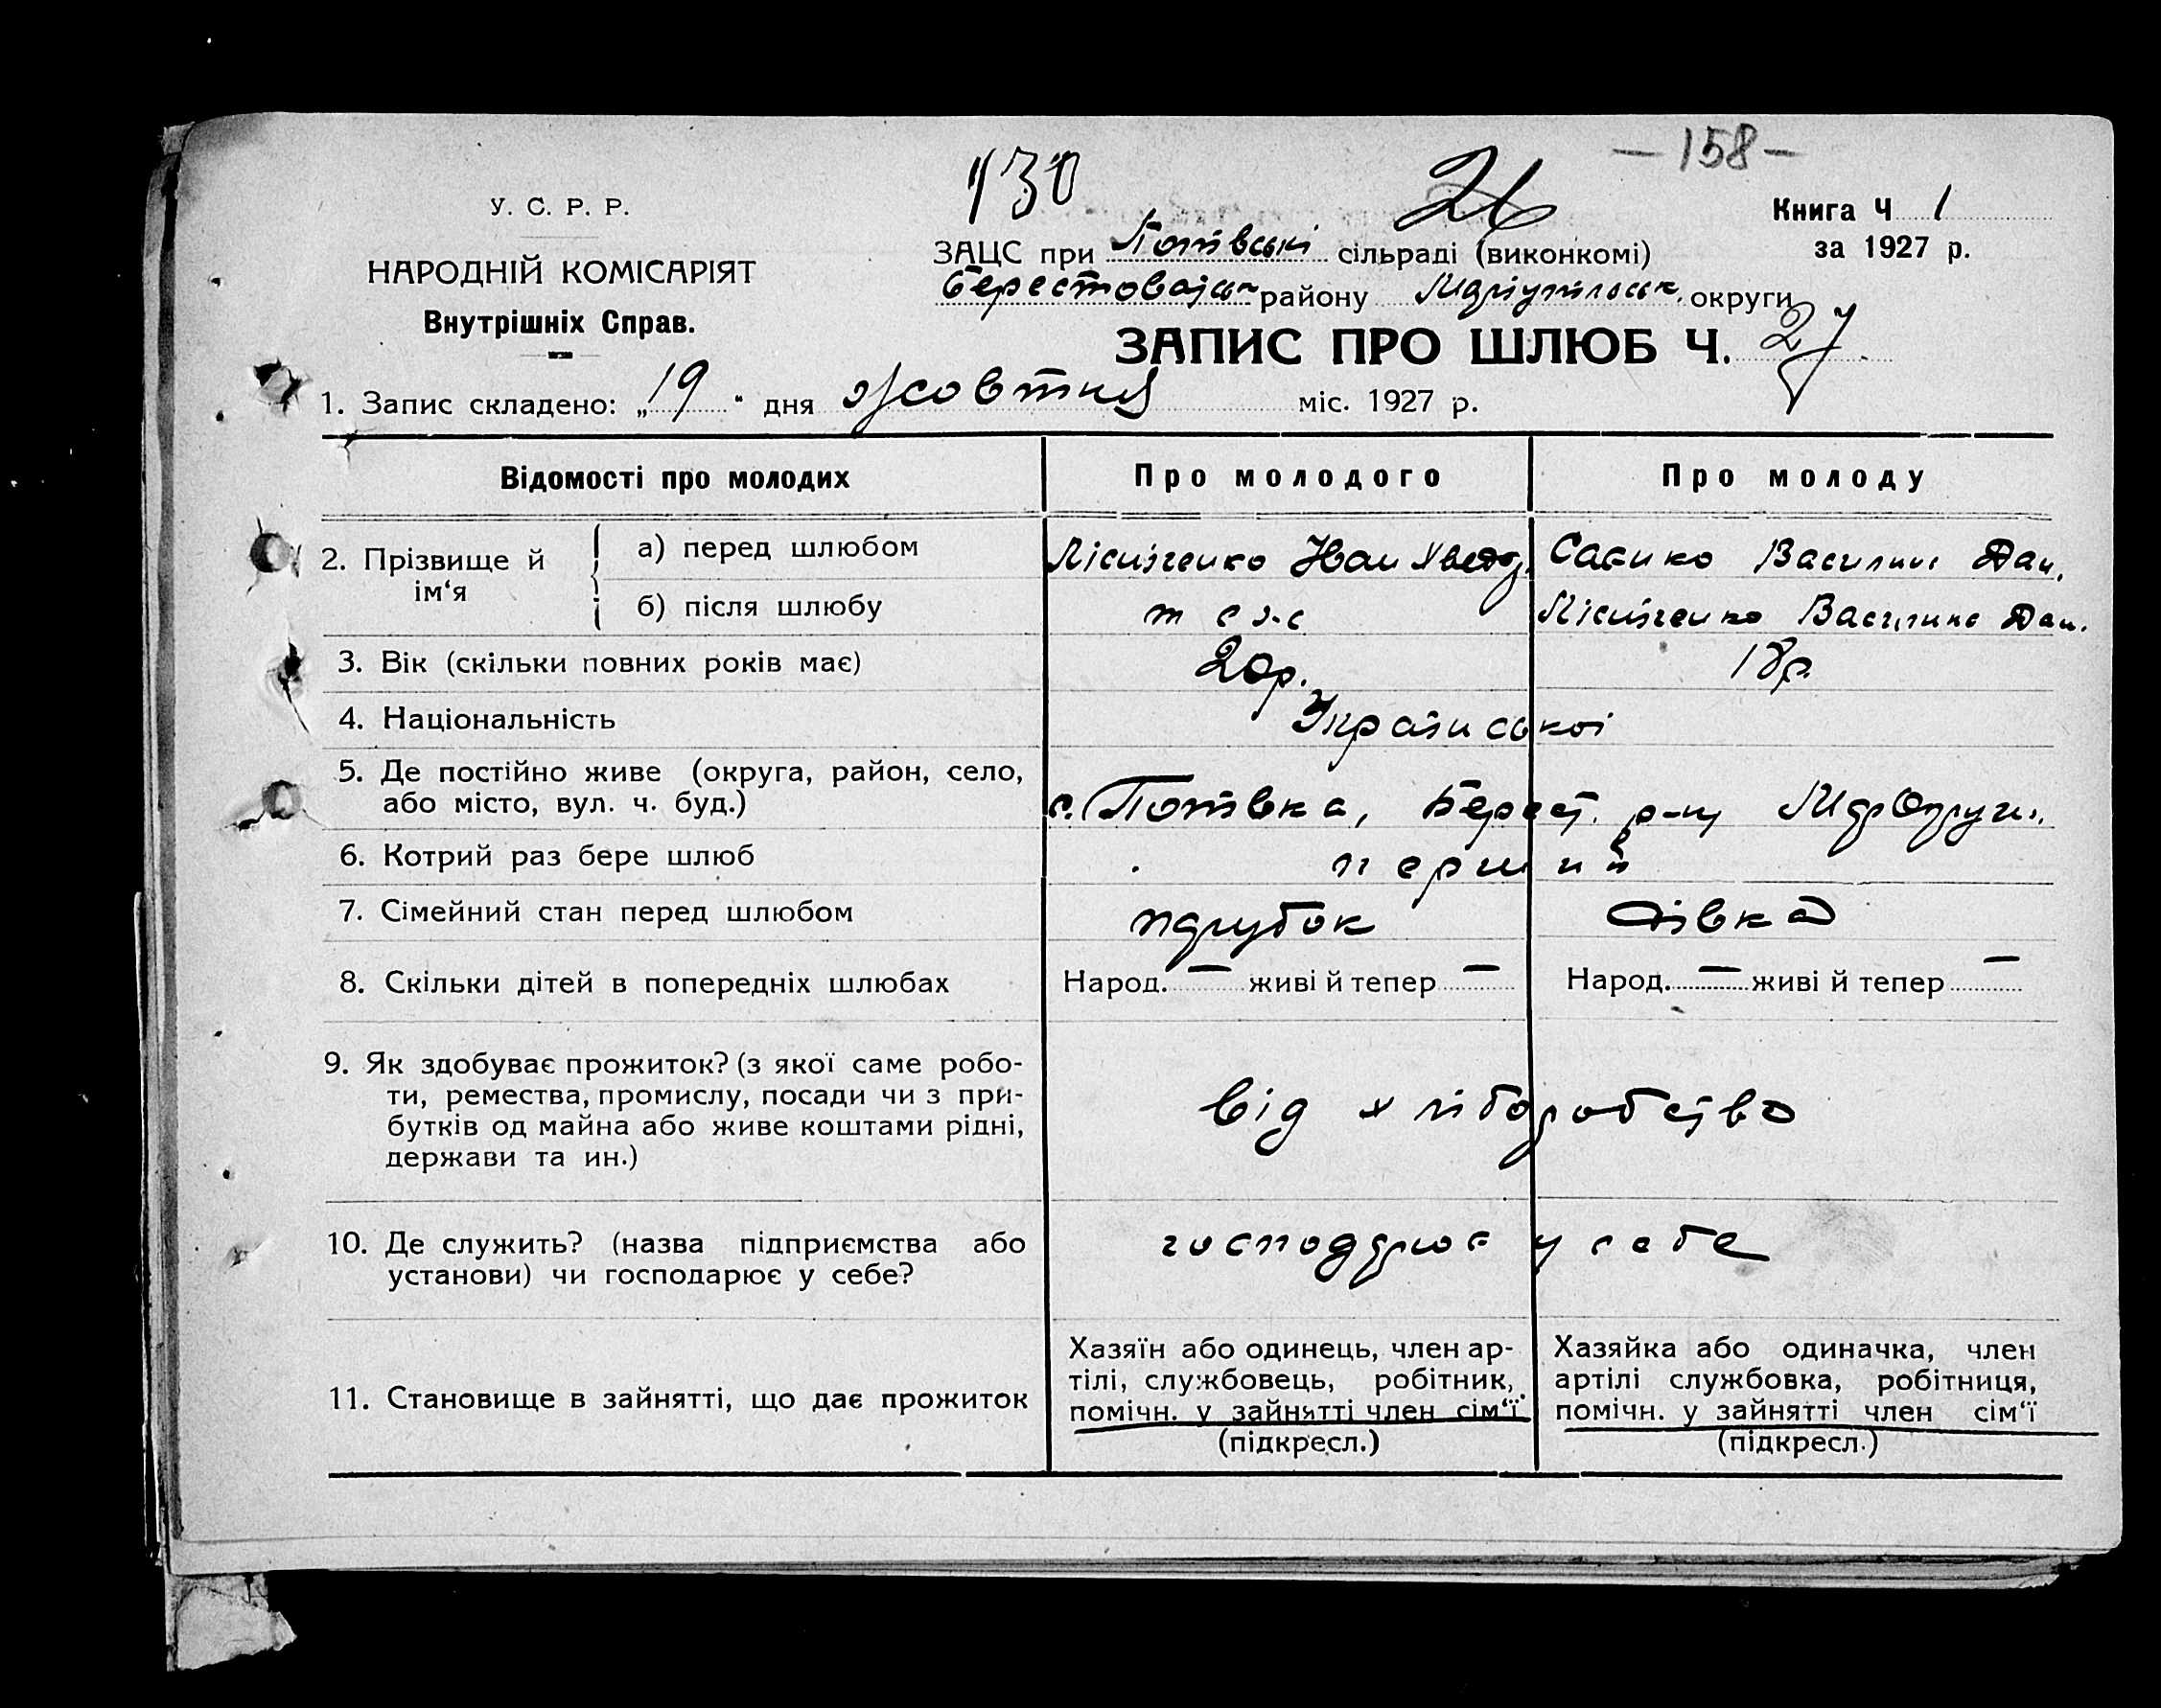 — 158 —
130
26
У. С. Р. Р.
НАРОДНІЙ КОМІСАРІЯТ
Внутрішніх Справ.
Книга Ч 1
за 1927 р.
ЗАЦС при Потївські сільраді (виконкомі)
Берестовајськ району Маріупільськ. округи
ЗАПИС ПРО ШЛЮБ Ч. 27
1. Запис складено: „19“ дня Жовтня міс. 1927 р.
Відомості про молодих Про молодого Про молоду
2. Прізвище й ім‘я
а) перед шлюбом Іван Хведор. Василина Дан.
б) після шлюбу теж Василина Дан.
3. Вік (скільки повних років має) 20р. 18р.
4. Національність Української
5. Де постійно живе (округа, район, село,
або місто, вул. ч. буд.) с. Потївка, Берест. р-ну МарОкруги.
6. Котрий раз бере шлюб перший
7. Сімейний стан перед шлюбом парубок дівка
8. Скільки дітей в попередніх шлюбах Народ. — живі й тепер — Народ. — живі й тепер —
9. Як здобуває прожиток? (з якої саме робо-
ти, ремества, промислу, посади чи з при-
бутків од майна або живе коштами рідні,
держави та ин.)
від хліборобство
10. Де служить? (назва підприємства або
установи) чи господарює у себе?
господарює у себе
11. Становище в зайнятті, що дає прожиток
Хазяїн або одинець, член ар-
тілі, службовець, робітник,
помічн. у зайнятті член сім‘ї
(підкресл.)
Хазяйка або одиначка, член
артілі службовка, робітниця,
помічн. у зайнятті член сім‘ї
(підкресл.)